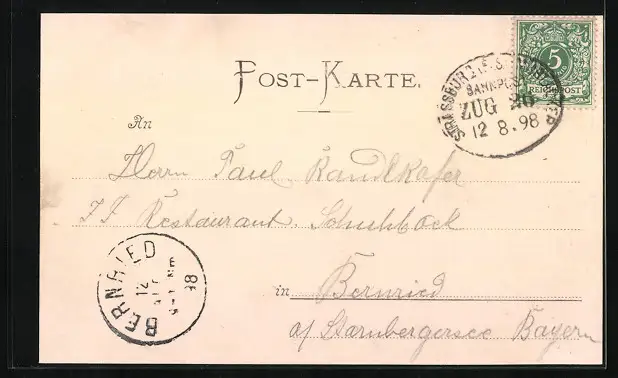 POST-KARTE.
5
REICHSPOST
STRASSBURG
BAHNPOST
ZUG 20
12 8.98
An
Herrn Paul Randlkofer
Restaurant
BERNRIED
12
98
in Bernried
a/ Starnbergersee Bayern